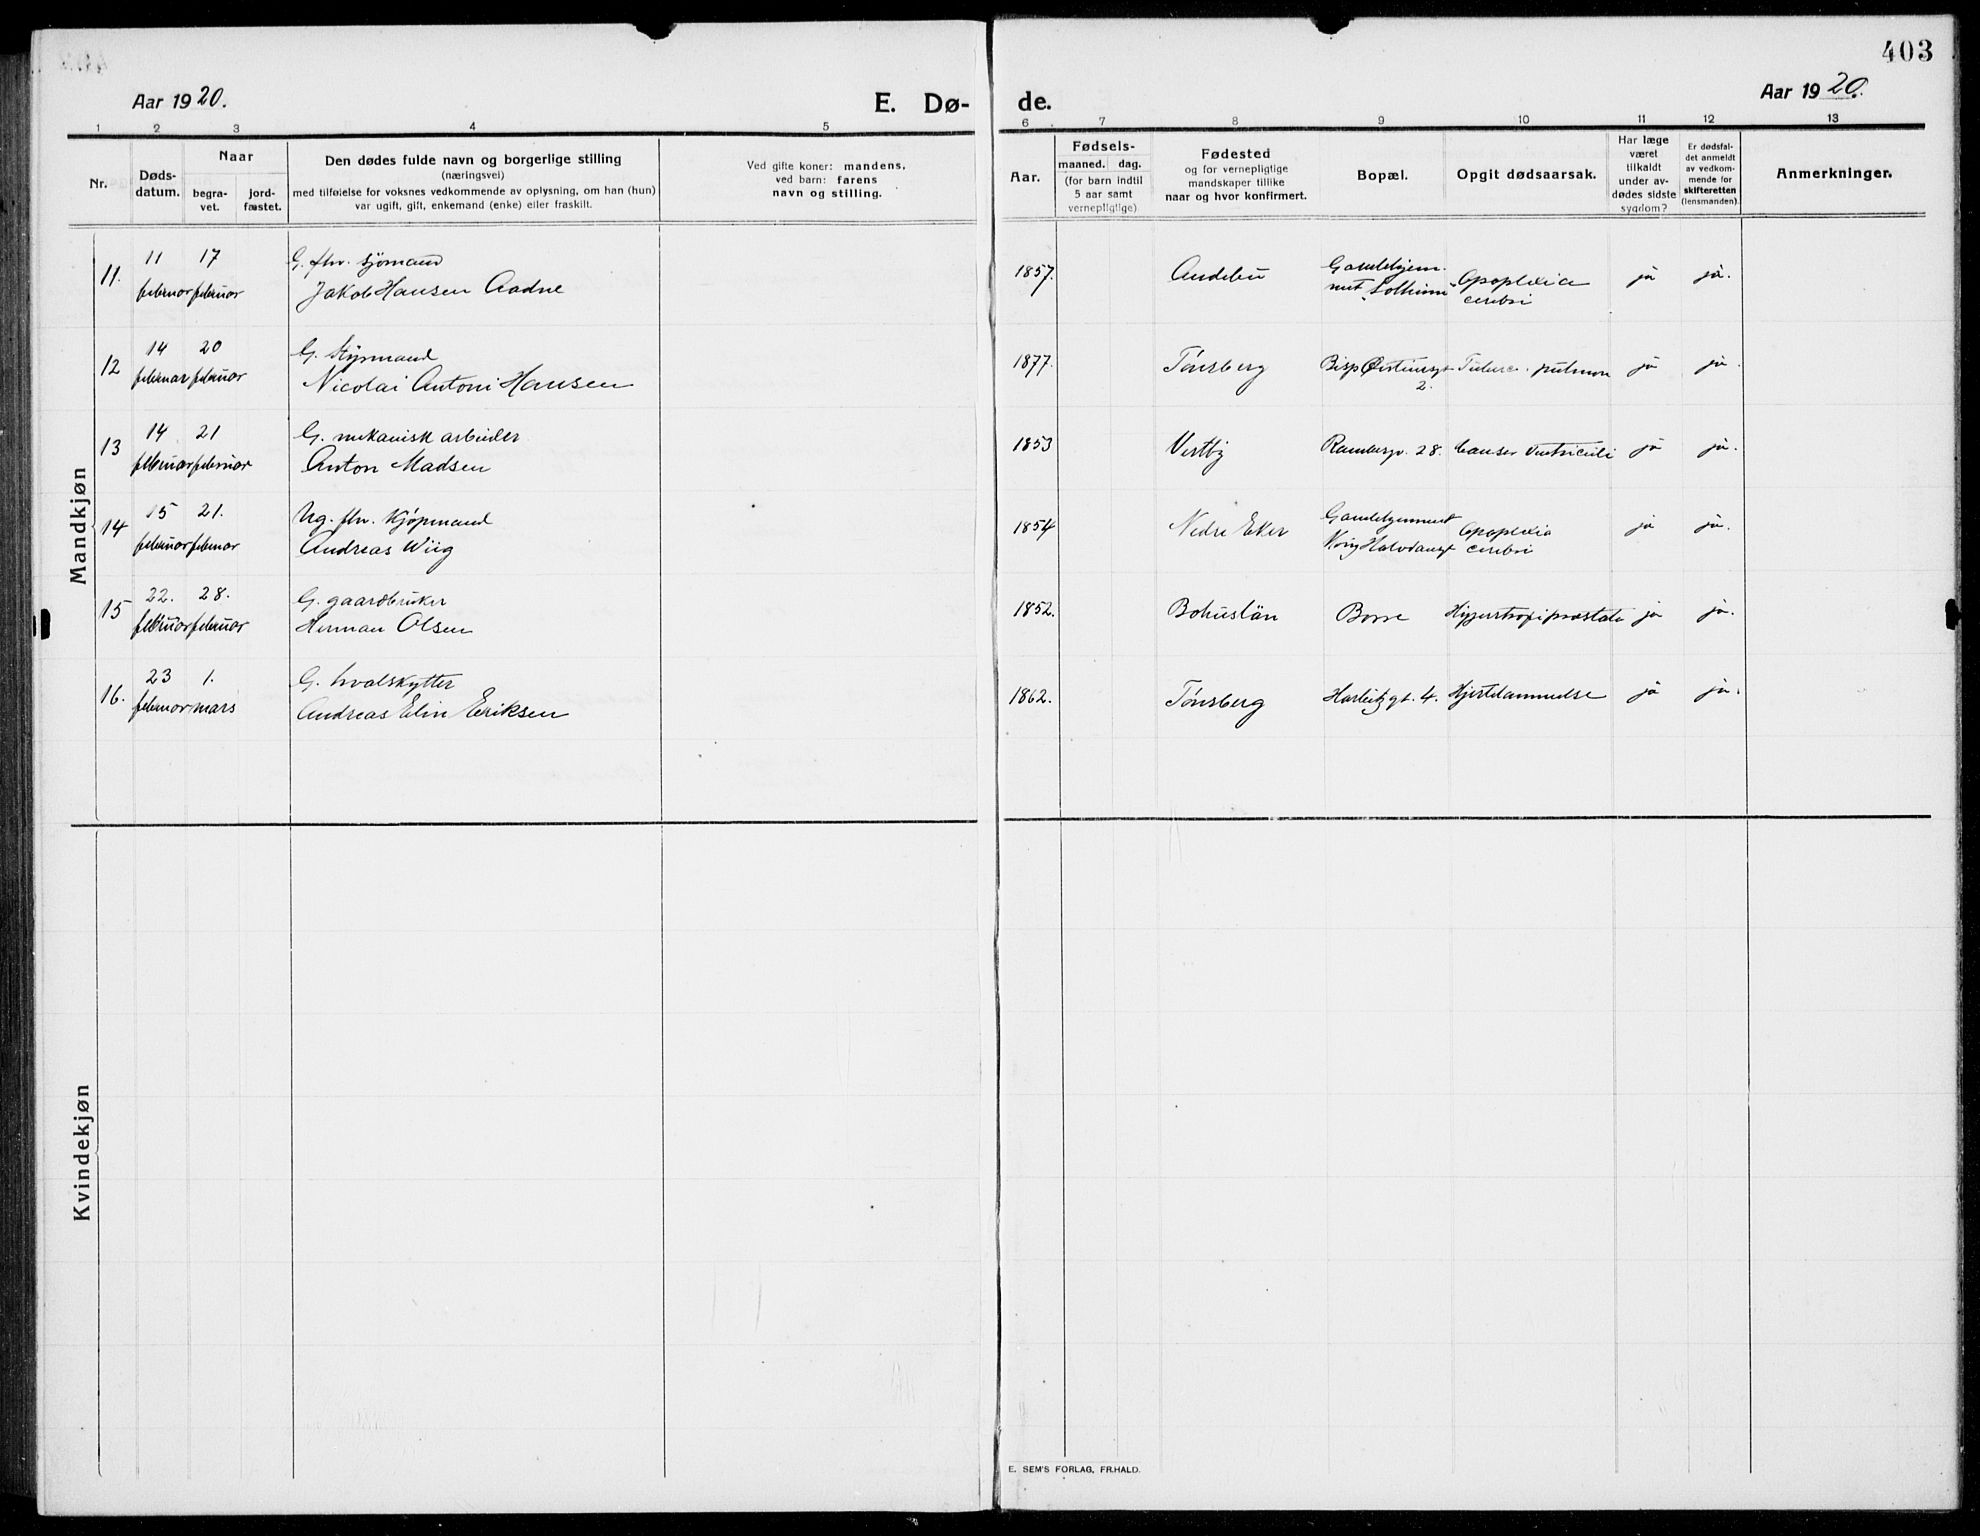 403
Aar 1920.
E. Dø-
de.
Aar 1920.
1 2 3 4 5 6 7 8 9 10 11 12 13
Nr.
Døds-
datum.
Naar
begra-
vet.
jord-
fæstet.
Den dødes fulde navn og borgerlige stilling
(næringsvei)
med tilføielse for voksnes vedkommende av oplysning, om han (hun)
var ugift, gift, enkemand (enke) eller fraskilt.
Ved gifte koner: mandens,
ved barn: farens
navn og stilling.
Aar.
Fødsels-
maaned. dag.
(for barn indtil
5 aar samt
vernepligtige)
Fødested
og for vernepligtige
mandskaper tillike
naar og hvor konfirmert.
Bopæl.
Opgit dødsaarsak.
Har læge
været
tilkaldt
under av-
dødes sidste
sygdom?
Er dødsfal-
det anmeldt
av vedkom-
mende for
skifteretten
(lensmanden).
Anmerkninger.
Mandkjøn
11. 11 februar 17 februar
G. fhv. sjømand
Jakob Hansen Aadne
1857. Andebu
Gamlehjem-
met "Solheim"
Apoplexia
cerebri
ja ja.
12 14 februar 20 februar
G. Styrmand
Nicolai Antoni Hansen
1877. Tønsberg
Bisp Øisteinsgt
2.
Tuberc. pulmon ja ja.
13 14 februar 21 februar
G. mekanisk arbeider
Anton Madsen
1853 Vestby Rambergv. 28. Cancer Ventriculi ja ja.
14 15 februar 21. februar
Ug. fhv. Kjøpmand
Andreas Wiig
1854 Nedre Eker
Gamlehjemmet
Kong Halvdansgt
Apoplexia
cerebri
ja ja.
15 22. februar 28. februar
G. gaardbruker
Herman Olsen
1852. Bohuslän Borre Hypertrofi prostata ja ja.
16. 23 februar 1. mars
G. hvalskytter
Andreas Elin Eriksen
1862. Tønsberg gt. 4. Hjertelammelse ja ja.
Kvindekjøn
E. SEM'S FORLAG, FR.HALD.